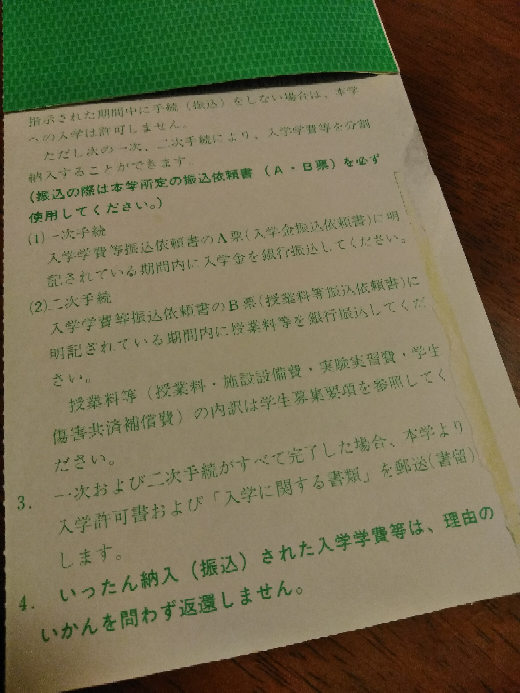 指示された期間中に手続（振込）をしない場合は、本学
への入学は許可しません。
ただし次の一次、二次手続により、入学学費等を分割
納入することができます。
(振込の際は本学所定の振込依頼書（A・B票）を必ず
使用してください。)
(1)一次手続
入学学費等振込依頼書のA票(入学金振込依頼書)に明
記されている期間内に入学金を銀行振込してください。
(2)二次手続
入学学費等振込依頼書のB票(授業料等振込依頼書)に
明記されている期間内に授業料等を銀行振込してくだ
さい。
授業料等（授業料・施設設備費・実験実習費・学生
傷害共済補償費）の内訳は学生募集要項を参照してく
ださい。
3. 一次および二次手続がすべて完了した場合、本学より
入学許可書および「入学に関する書類」を郵送(書留)
します。
4. いったん納入（振込）された入学学費等は、理由の
いかんを問わず返還しません。